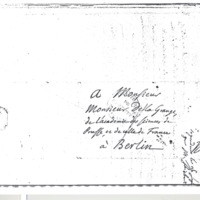 A Monsieur
Monsieur De la Grange,
de l'académie des sciences de
Prusse, et de celle de France
à Berlin